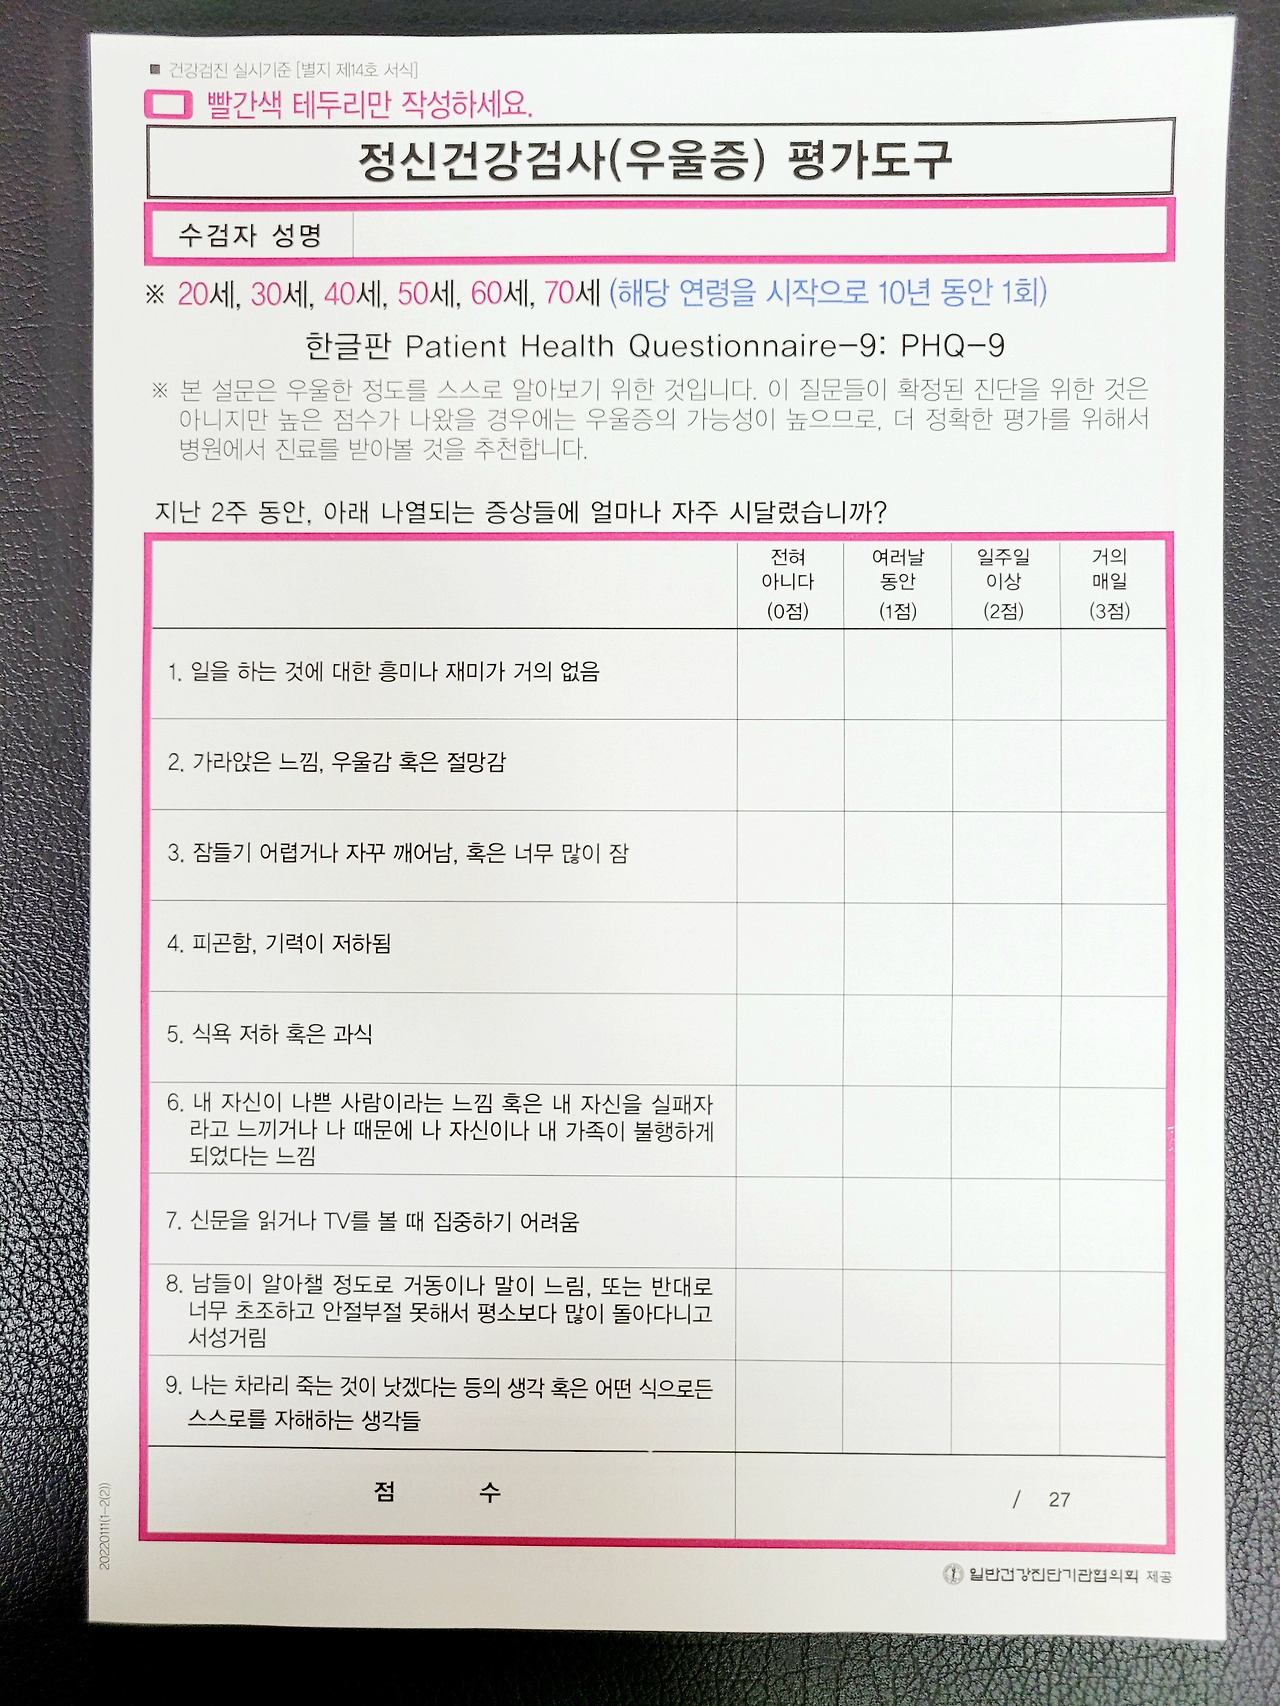 ■ 건강검진 실시기준 [별지 제14호 서식]
빨간색 테두리만 작성하세요.
정신건강검사(우울증) 평가도구
수검자 성명
※ 20세, 30세, 40세, 50세, 60세, 70세 (해당 연령을 시작으로 10년 동안 1회)
한글판 Patient Health Questionnaire-9: PHQ-9
※ 본 설문은 우울한 정도를 스스로 알아보기 위한 것입니다. 이 질문들이 확정된 진단을 위한 것은
아니지만 높은 점수가 나왔을 경우에는 우울증의 가능성이 높으므로, 더 정확한 평가를 위해서
병원에서 진료를 받아볼 것을 추천합니다.
지난 2주 동안, 아래 나열되는 증상들에 얼마나 자주 시달렸습니까?
전혀 여러날 일주일 거의
아니다 동안 이상 매일
(0점) (1점) (2점) (3점)
1. 일을 하는 것에 대한 흥미나 재미가 거의 없음
2. 가라앉은 느낌, 우울감 혹은 절망감
3. 잠들기 어렵거나 자꾸 깨어남, 혹은 너무 많이 잠
4. 피곤함, 기력이 저하됨
5. 식욕 저하 혹은 과식
6. 내 자신이 나쁜 사람이라는 느낌 혹은 내 자신을 실패자
라고 느끼거나 나 때문에 나 자신이나 내 가족이 불행하게
되었다는 느낌
7. 신문을 읽거나 TV를 볼 때 집중하기 어려움
8. 남들이 알아챌 정도로 거동이나 말이 느림, 또는 반대로
너무 초조하고 안절부절 못해서 평소보다 많이 돌아다니고
서성거림
9. 나는 차라리 죽는 것이 낫겠다는 등의 생각 혹은 어떤 식으로든
스스로를 자해하는 생각들
점 수 / 27
20220111(1-2(2))
일반건강진단기관협의회 제공